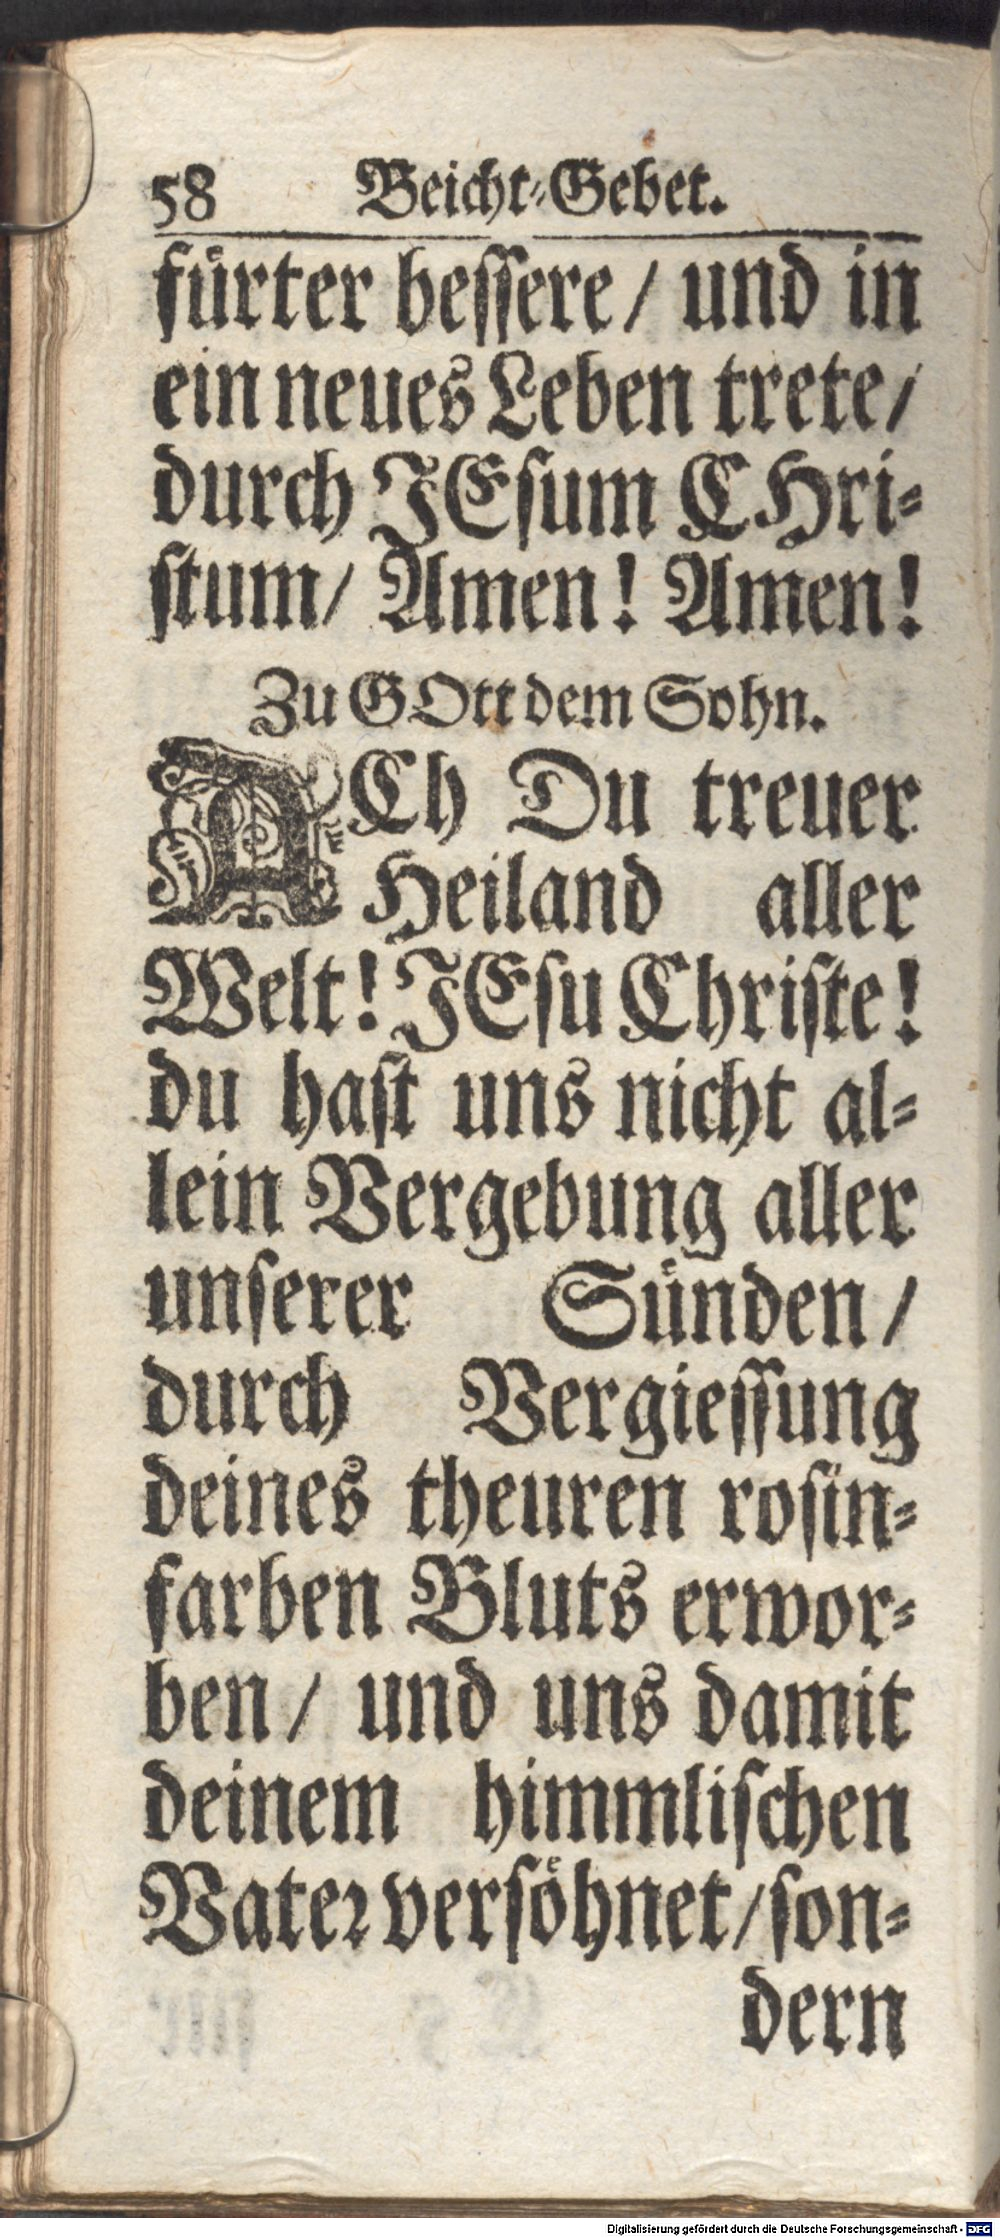 58 Beicht-Gebet.
fürter bessere / und in
ein neues Leben trete /
durch JEsum CHri-
stum / Amen! Amen!
Zu GOtt dem Sohn.
ACh Du treuer
Heiland aller
Welt! JEsu Christe!
du hast uns nicht al-
lein Vergebung aller
unserer Sünden /
durch Vergiessung
deines theuren rosin-
farben Bluts erwor-
ben / und uns damit
deinem himmlischen
Vater versöhnet / son-
dern
Digitalisierung gefördert durch die Deutsche Forschungsgemeinschaft - DFG